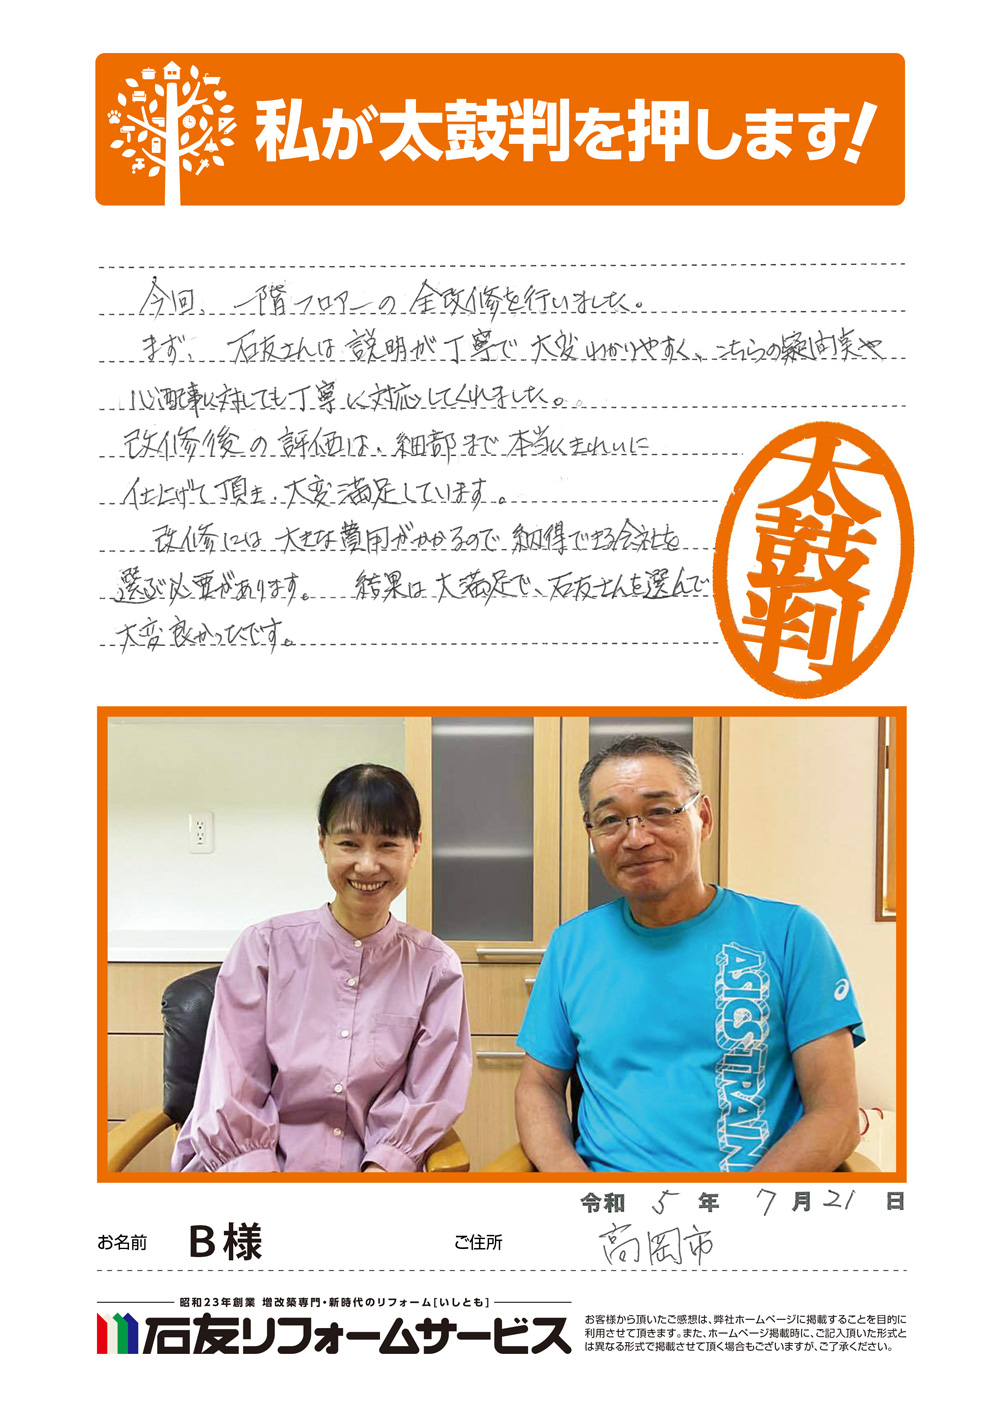 私が太鼓判を押します!
今回、一階フロアーの全改修を行いました。
まず、石友さんは説明が丁寧で大変わかりやすく、こちらの疑問点や
心配事に対しても丁寧に対応してくれました。
改修後の評価は、細部まで本当にきれいに
仕上げて頂き、大変満足しています。
改修には大きな費用がかかるので納得できる会社を
選ぶ必要があります。結果は大満足で、石友さんを選んで
大変良かったです。
太鼓判
ASICS TRAIN
令和 5 年 7 月 21 日
お名前 B様 ご住所 高岡市
昭和23年創業 増改築専門・新時代のリフォーム[いしとも]
石友リフォームサービス
お客様から頂いたご感想は、弊社ホームページに掲載することを目的に
利用させて頂きます。また、ホームページ掲載時に、ご記入頂いた形式と
は異なる形式で掲載させて頂く場合もございますが、ご了承ください。